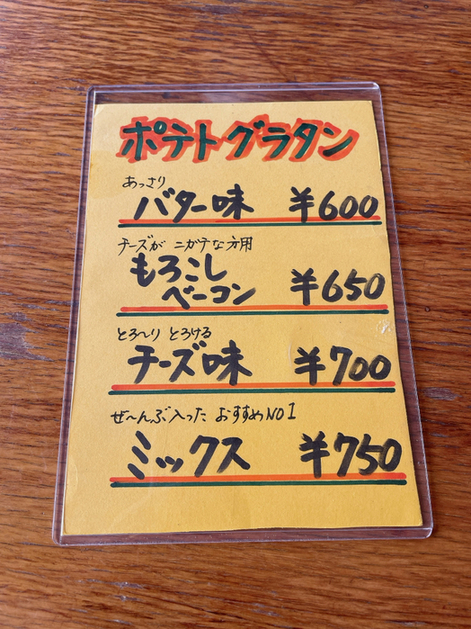 ポテトグラタン
あっさり
バター味 ¥600
チーズが ニガテな方用
もろこし
ベーコン ¥650
とろ〜り とろける
チーズ味 ¥700
ぜ〜んぶ入った おすすめNO1
ミックス ¥750